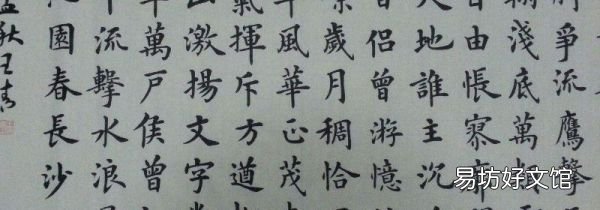 爭流鷹擊
淺底萬類
自由悵寥廓
大地誰主沉
侶曾游憶
歲月稠恰
風華正茂
氣揮斥方遒
激揚文字
萬戶侯曾
流擊水浪
園春長沙
孟秋王
易坊好文馆